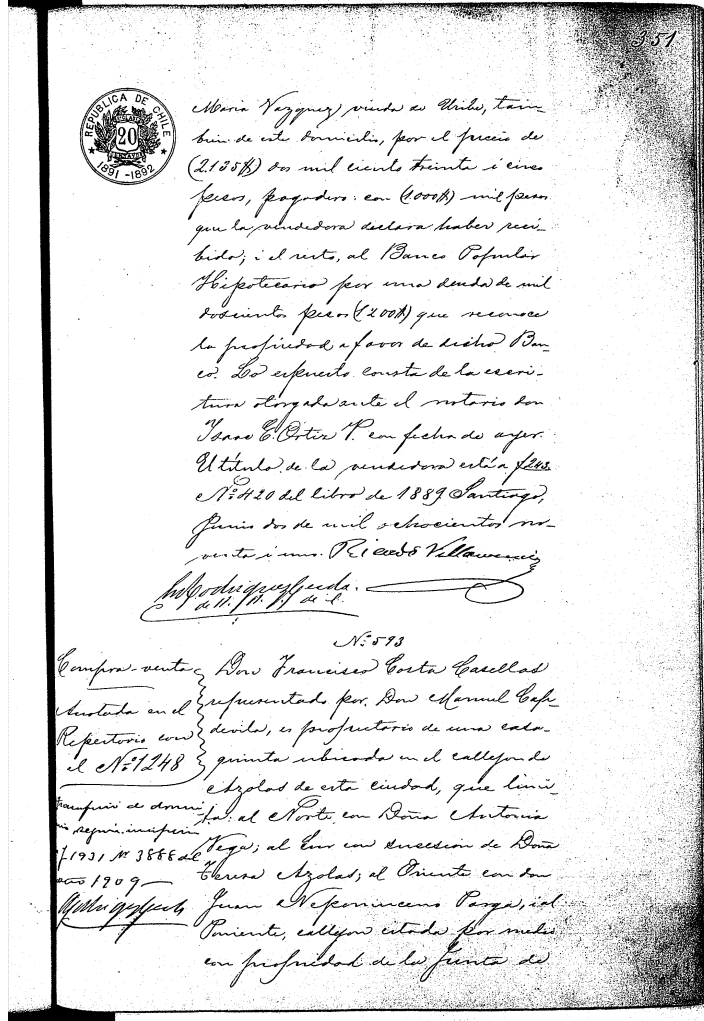 351
REPUBLICA DE CHILE
20
1891-1892
Maria Vazquez viuda de Uribe, tam-
bien de este domicilio, por el precio de
(2.135$) dos mil ciento treinta i cinco
pesos, pagadero: con (1.000$) mil pesos
que la vendedora declara haber reci-
bido; i el resto, al Banco Popular
Hipotecario por una deuda de mil
doscientos pesos (1.200$) que reconoce
la propiedad a favor de dicho Ban-
co. Lo espuesto consta de la escri-
tura otorgada ante el notario don
Isaac C. Ortiz V. con fecha de ayer.
El título de la vendedora está a f 243
No. 420 del libro de 1889 Santiago,
Junio dos de mil ochocientos no-
venta i uno. Ricardo
No. 593
Compra-venta
Anotada en el
Repertorio con
el No. 1248
de domi
nio segun inscripcion
f 1931 No 3888 del
año 1909
Don Francisco Costa Casellas
representado por Don Manuel Cap-
devila, es propietario de una casa-
quinta ubicada en el callejon de
Azolas de esta ciudad, que limi-
ta: al Norte con Doña Antonia
Vega; al Sur con sucesion de Doña
Teresa Azolas; al Oriente con don
Juan Nepomuceno Parga, i al
Poniente, callejon citado por medio
con propiedad de la Junta de